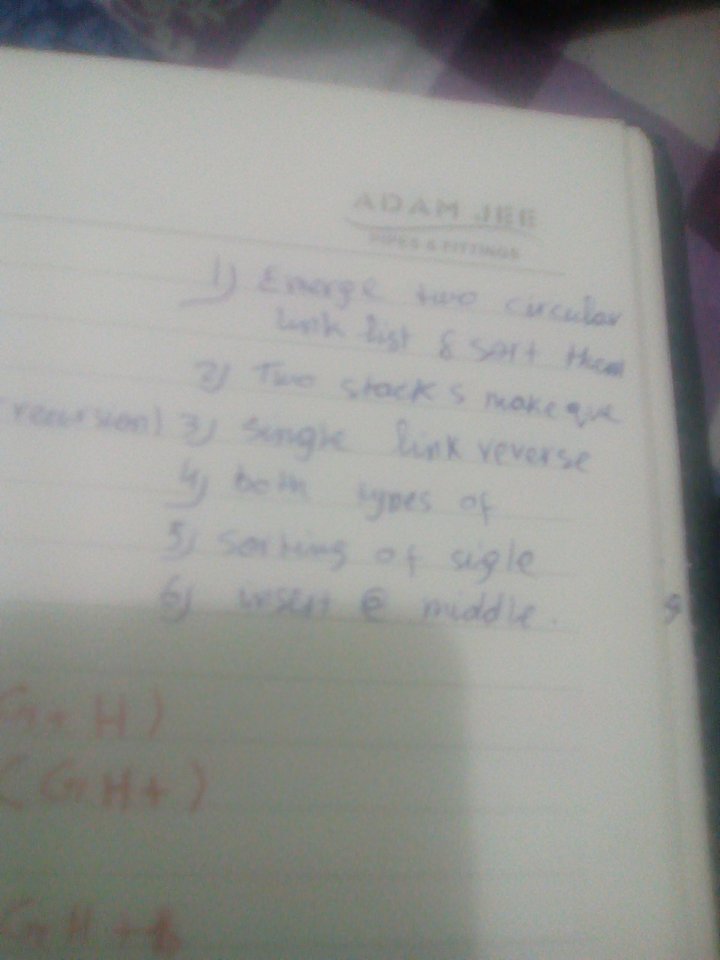 ADAM JEE
PIPES & FITTINGS
1) Emerge two circular
link list & sort them
2) Two stacks make que
(recursion) 3) Single link reverse
4) both types of
5) sorting of sigle
6) insert @ middle.
G+H)
(GH+)
GH+